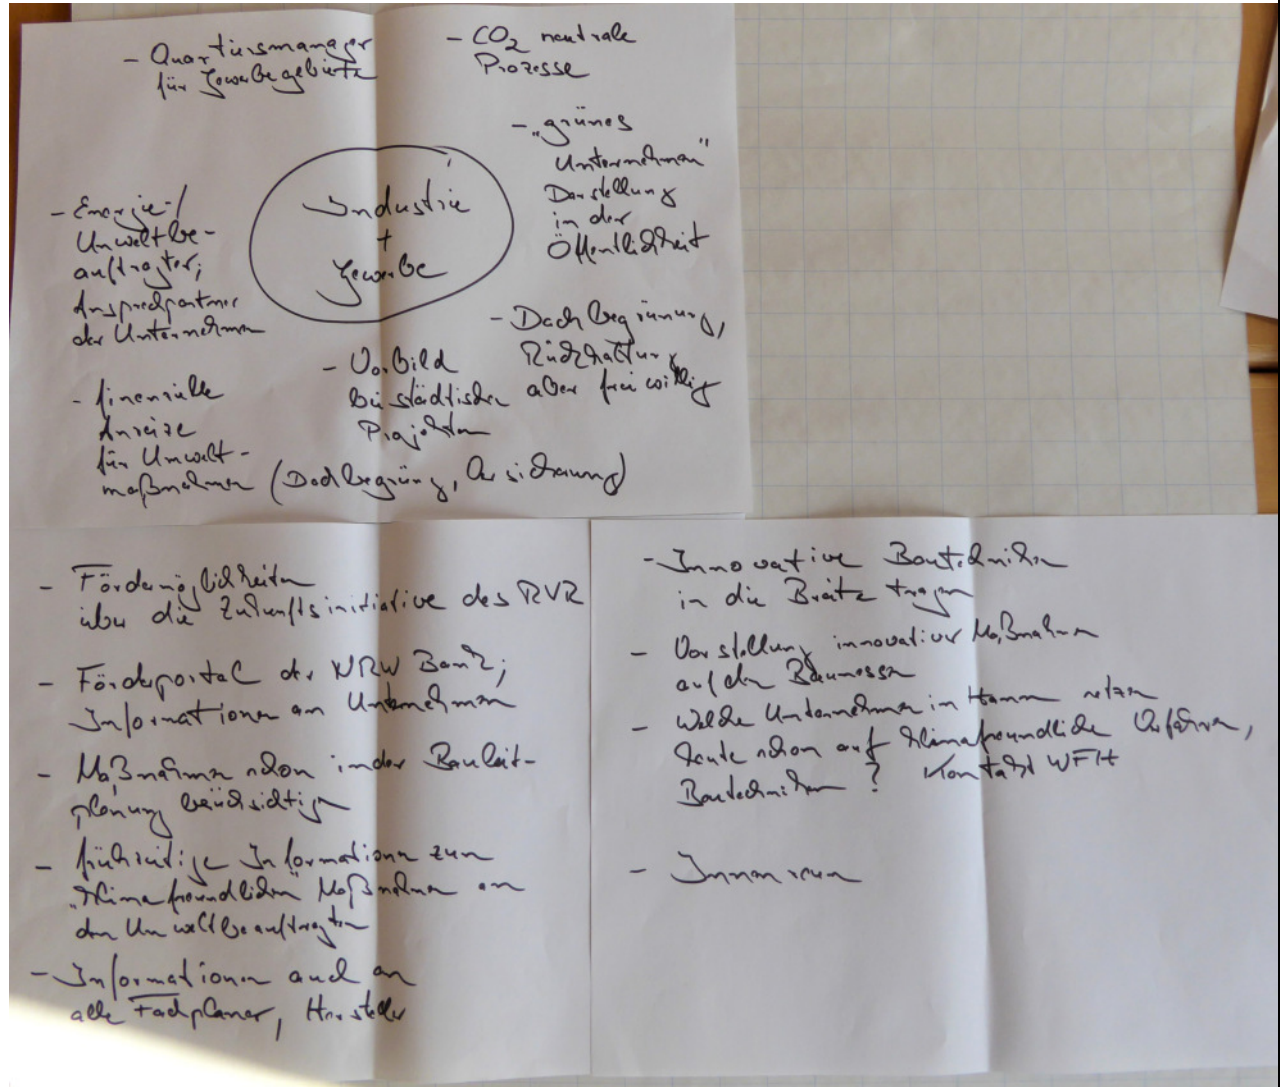 - Quartiersmanager
für Gewerbegebiete
- CO2 neutrale
Prozesse
- „grünes
Unternehmen"
Darstellung
in der
Öffentlichkeit
Industrie
+
Gewerbe
- Energie-/
Umweltbe-
auftragter;
Ansprechpartner
der Unternehmen
- Dachbegrünung,
Rückhaltung
aber freiwillig
- Vorbild
bei städtischen
Projekten
- finanzielle
Anreize
für Umwelt-
maßnahmen (Dachbegrüng, Versickerung)
- Fördermöglichkeiten
über die Zukunftsinitiative des RVR
- Förderportal der NRW Bank;
Informationen an Unternehmen
- Maßnahmen schon in der Bauleit-
planung berücksichtigen
- frühzeitige Informationen zum
„klimafreundlichen" Maßnahmen an
den Umweltbeauftragten
- Informationen auch an
alle Fachplaner, Hersteller
- Innovative Bautechniken
in die Breite tragen
- Vorstellung innovativer Maßnahmen
auf den Baumessen
- Welche Unternehmen in Hamm setzen
heute schon auf klimafreundliche Verfahren,
Bautechniken? Kontakt WFH
-